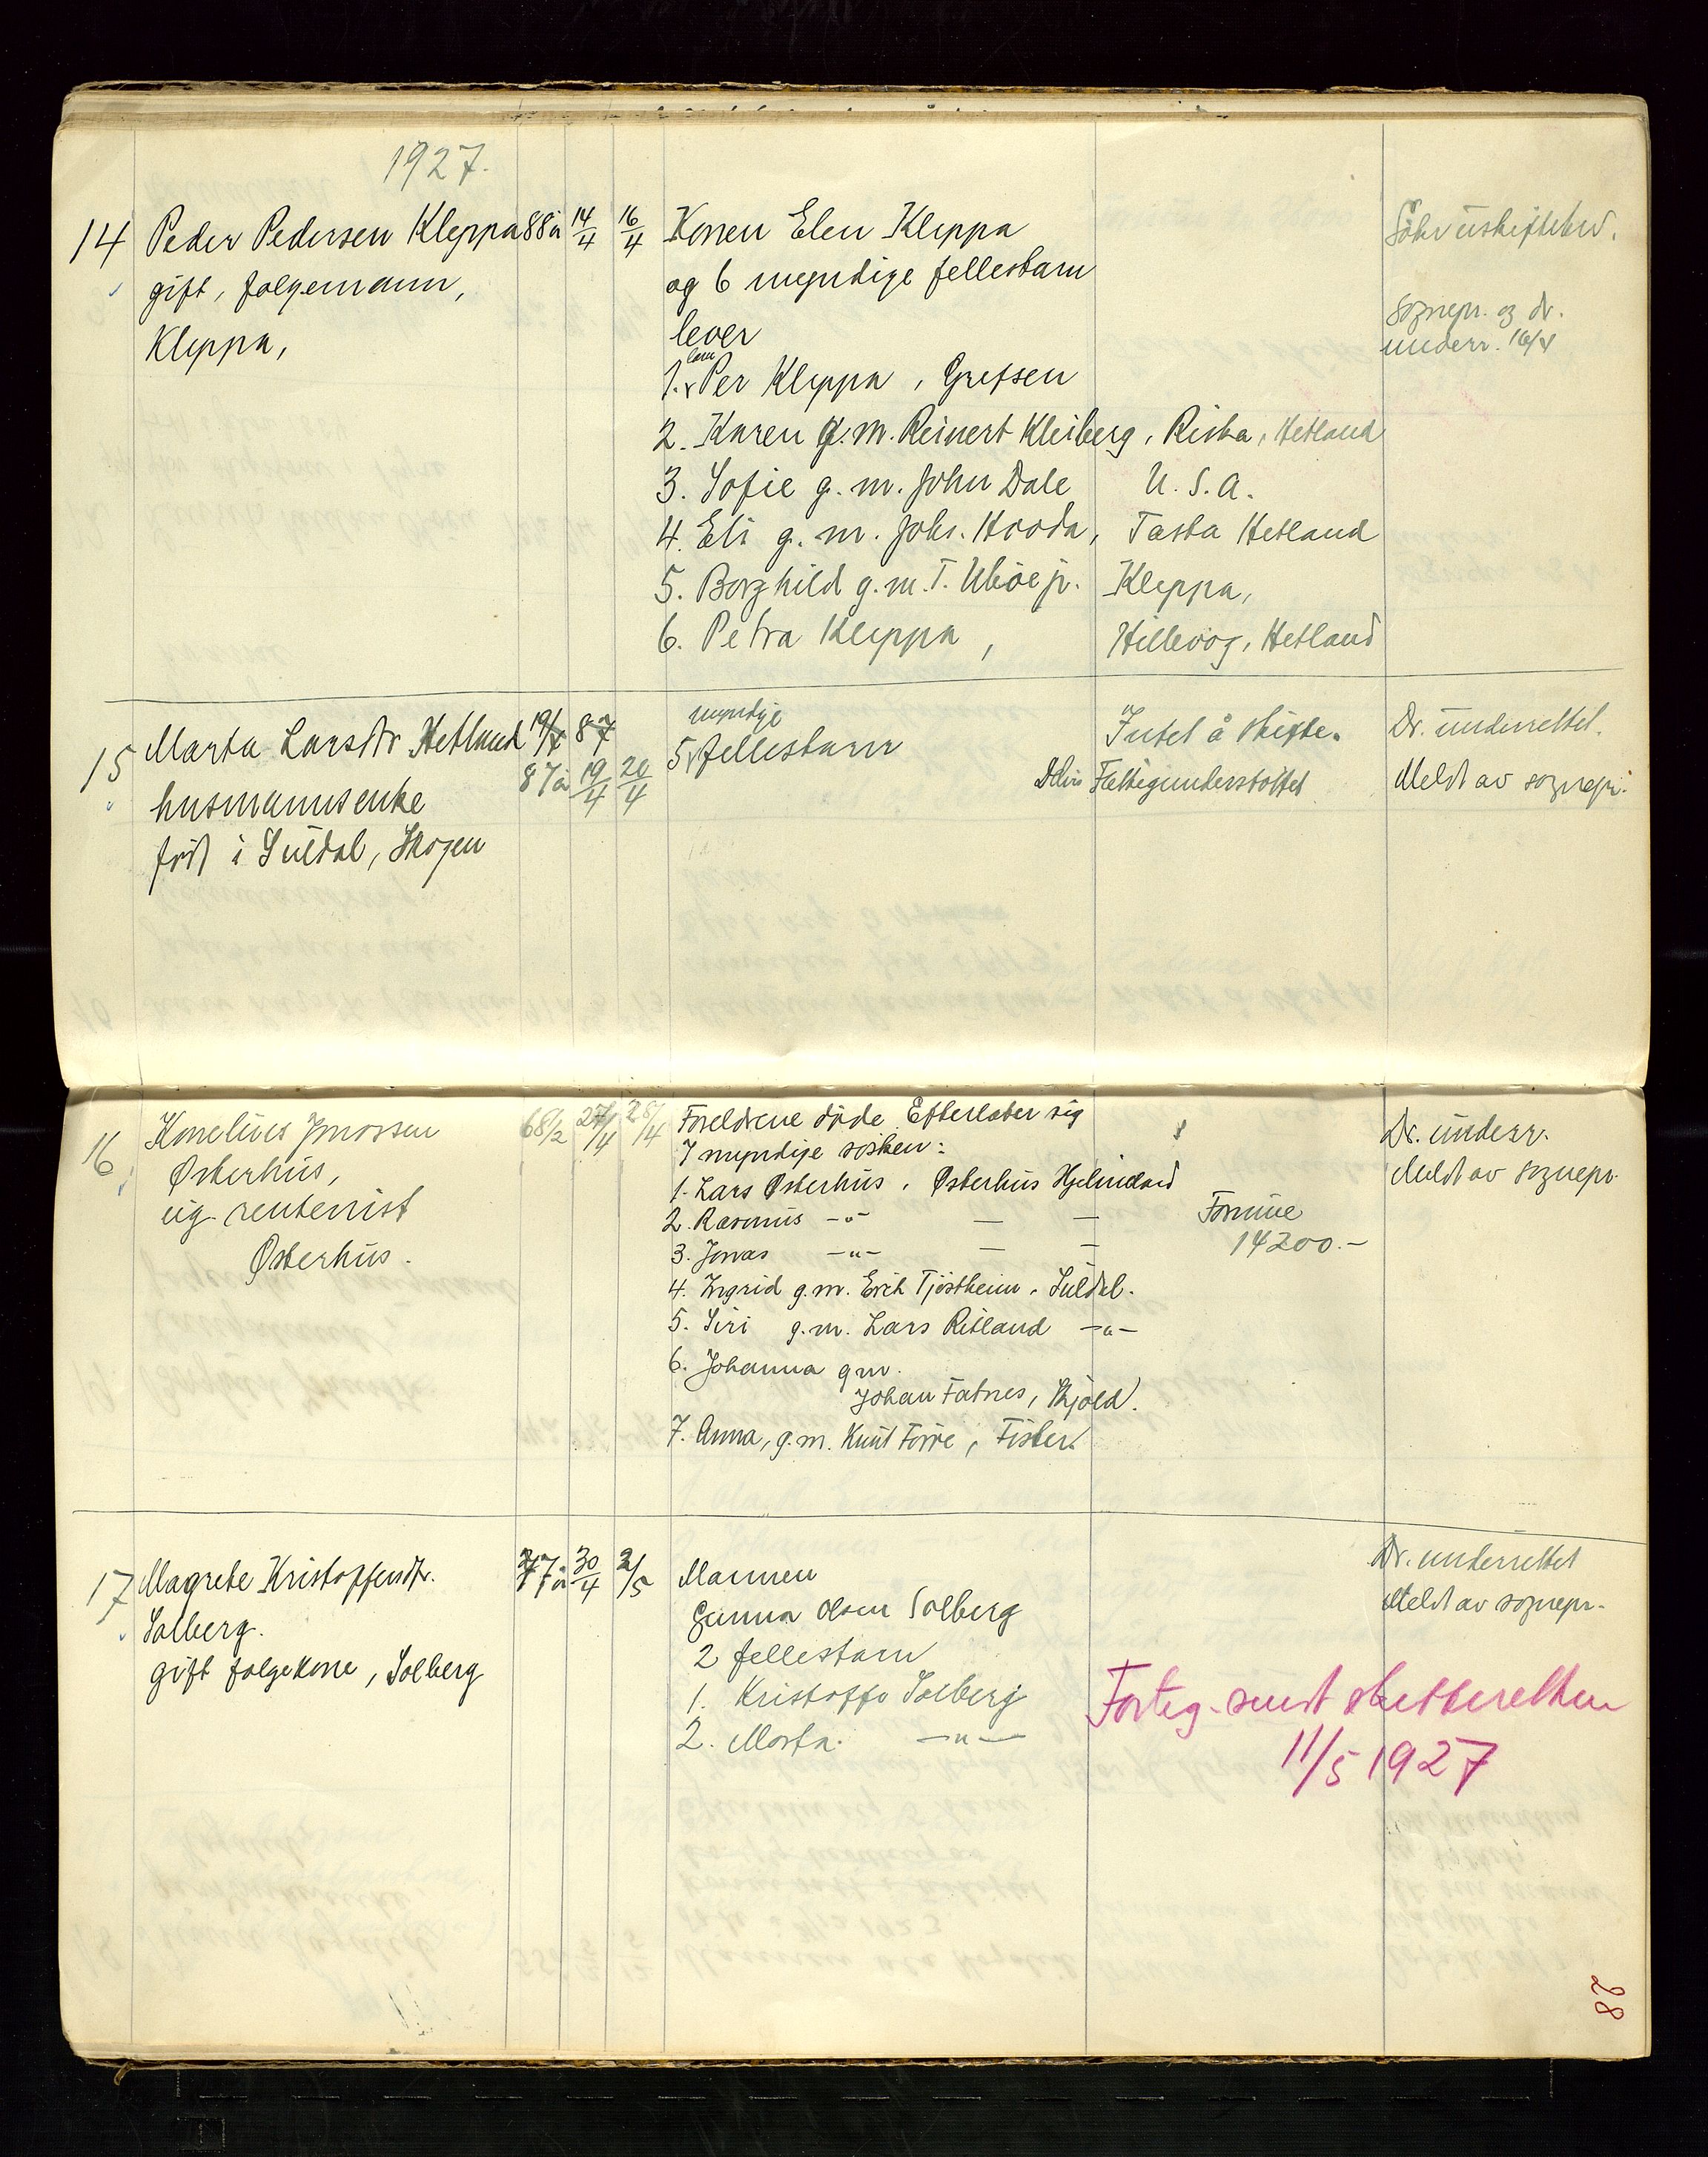 1927.
14 Peder Pedersen Kleppa 88 år 14/4 16/4 Konen Elen Kleppa
gift, følgemann, og 6 myndige fellesbarn
Kleppa, lever
1. Lars Per Kleppa, Grefsen
2. Karen g.m. Reinert Kleiberg, Riska, Hetland
3. Sofie g.m. John Dale U.S.A.
4. Eli g.m. Johs. Hooda, Tasta Hetland
5. Borghild g.m. T. Ubøe jr. Kleppa,
6. Petra Kleppa, Hillevog, Hetland
sognepr. og dr.
underr. 16/4
15 Marta Larsdtr Hetland 19/7 87
87 år 19/4 20/4
husmannsenke
født i Suldal, Skogen
myndige
5 fellesbarn
Intet å skifte.
Delvis Fattigunderstøttet
Dr. underrettet.
Meldt av sognepr.
16 Kornelius Jonassen 68 1/2 27/4 28/4
Østerhus,
ug. rentenist
Østerhus.
Foreldrene døde. Efterlater sig
7 myndige søsken:
1. Lars Østerhus, Østerhus Hjelmeland
2. Rasmus -"- — —
3. Jonas -"- — —
4. Ingrid g.m. Erik Tjøstheim, Suldal.
5. Siri g.m. Lars Ritland -"-
6. Johanna g.m.
Johan Fatnes, Skjold.
7. Anna, g.m. Knut Førre, Fister.
Formue
14200.-
Dr. underr.
Meldt av sognepr.
17 Magrete Kristoffersdtr. 77 år 30/4 2/5
Solberg.
gift følgekone, Solberg
Mannen
Gunna Olsen Solberg
2 fellesbarn
1. Kristoffer Solberg
2. Marta. -"-
Dr. underrettet
Meldt av sognepr.
Forteg. sendt skifteretten
11/5 1927
88